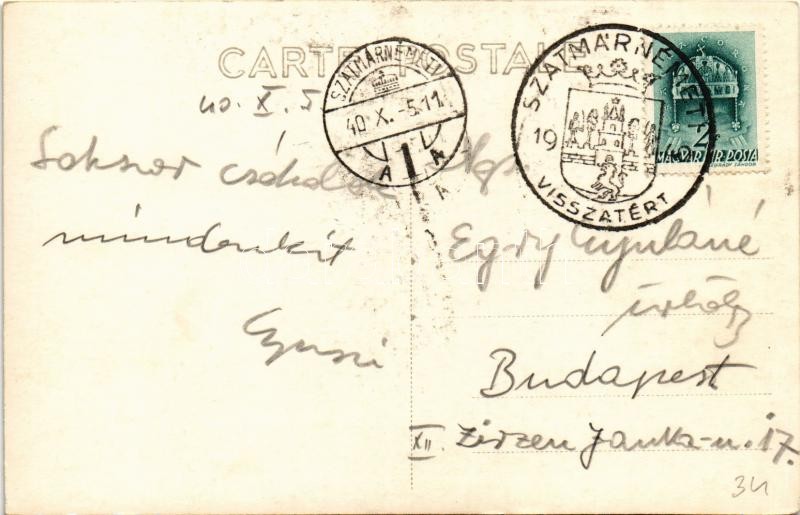 CARTE POSTALE
SZATMÁRNÉMETI
40 X. -5.11
A A
SZATMÁRNÉMETI
19
VISSZATÉRT
2
MAGYAR POSTA
40. X. 5
Sokszor csókolok
mindenkit
Gyuszi
Egry Gyuláné
Budapest
XII. Zirzen Janka-u. 17.
34